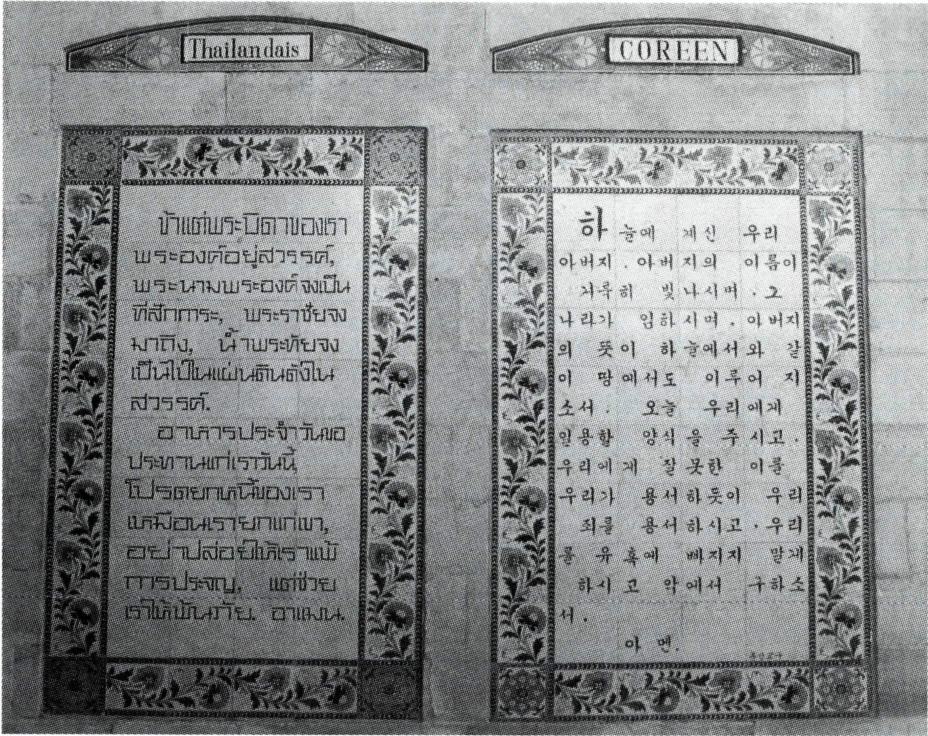 Thailandais
ข้าแต่พระบิดาของเรา
พระองค์อยู่สวรรค์,
พระนามพระองค์จงเป็น
ที่สักการะ, พระราชัยจง
มาถึง, น้ำพระทัยจง
เป็นไปในแผ่นดินดังใน
สวรรค์.
อาหารประจำวันขอ
ประทานแก่เราวันนี้
โปรดยกหนี้ของเรา
เหมือนเรายกแก่เขา,
อย่าปล่อยให้เราแพ้
การประจญ, แต่ช่วย
เราให้พ้นภัย. อาแมน.
COREEN
하늘에 계신 우리
아버지. 아버지의 이름이
거룩히 빛나시며. 그
나라가 임하시며. 아버지
의 뜻이 하늘에서와 같
이 땅에서도 이루어 지
소서. 오늘 우리에게
일용할 양식을 주시고.
우리에게 잘못한 이를
우리가 용서하듯이 우리
죄를 용서하시고. 우리
를 유혹에 빠지지 말게
하시고 악에서 구하소
서.
아멘.